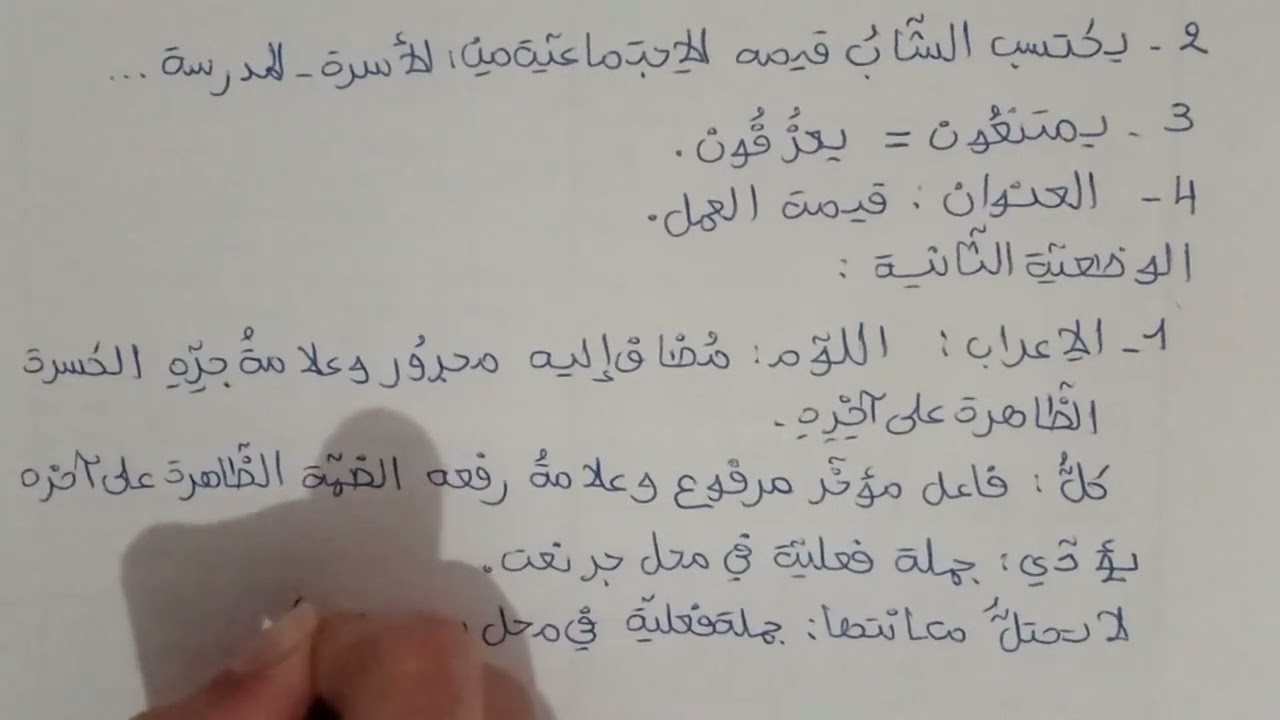 2 - يكتسب الشّابُ قيمه الإجتماعيّة من: الأسرة - المدرسة ...
3 - يمتنعُون = يعزُفُون.
4 - العنوان : قيمة العمل.
الوضعيّة الثّانية :
1 - الإعراب : اللّوم : مُضاف إليه مجرُور وعلامةُ جرّهِ الكسرة
الظّاهرة على آخِرِهِ.
كلُّ : فاعل مؤخّر مرفُوع وعلامةُ رفعه الضّمّة الظّاهرة على آخره
يؤدّي : جملة فعليّة في محل جر نعت.
لا يحتلُّ مكانتها : جملة فعليّة في محل